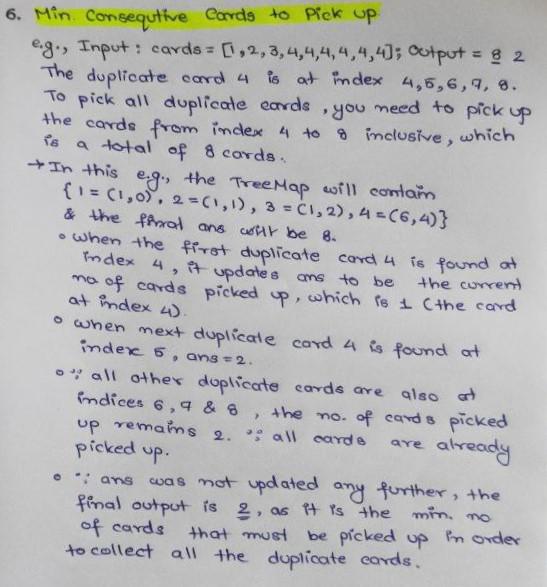 6. Min. Consequtive Cards to Pick up
e.g., Input : cards = [1,2,3,4,4,4,4,4,4]; Output = 8 2
The duplicate card 4 is at index 4,5,6,7,8.
To pick all duplicate cards, you need to pick up
the cards from index 4 to 8 inclusive, which
is a total of 8 cards.
→ In this e.g., the TreeMap will contain
{1=(1,0), 2=(1,1), 3=(1,2), 4=(6,4)}
& the final ans will be 8.
• when the first duplicate card 4 is found at
index 4, it updates ans to be the current
no of cards picked up, which is 1 (the card
at index 4).
• when next duplicate card 4 is found at
index 5, ans=2.
• ∵ all other duplicate cards are also at
indices 6,7 & 8, the no. of cards picked
up remains 2. ∵ all cards are already
picked up.
• ∵ ans was not updated any further, the
final output is 2, as it is the min. no
of cards that must be picked up in order
to collect all the duplicate cards.